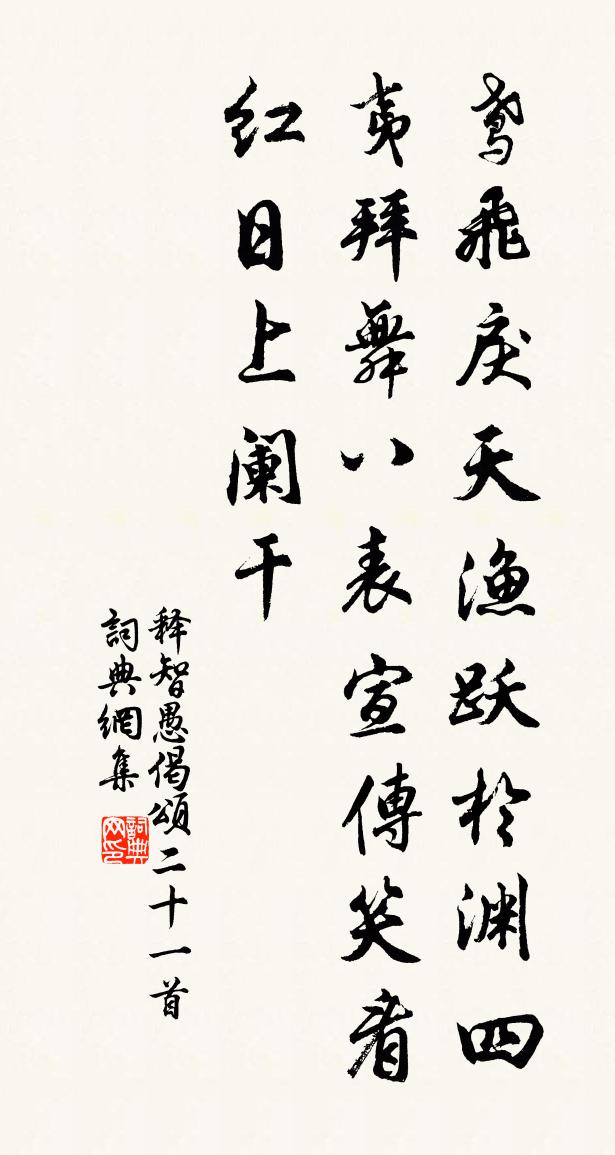 鸢飛戾天渔跃於渊四
夷拜舞八表宣傳笑看
红日上阑干
释智愚偈頌二十一首
詞典網集
詞典网印